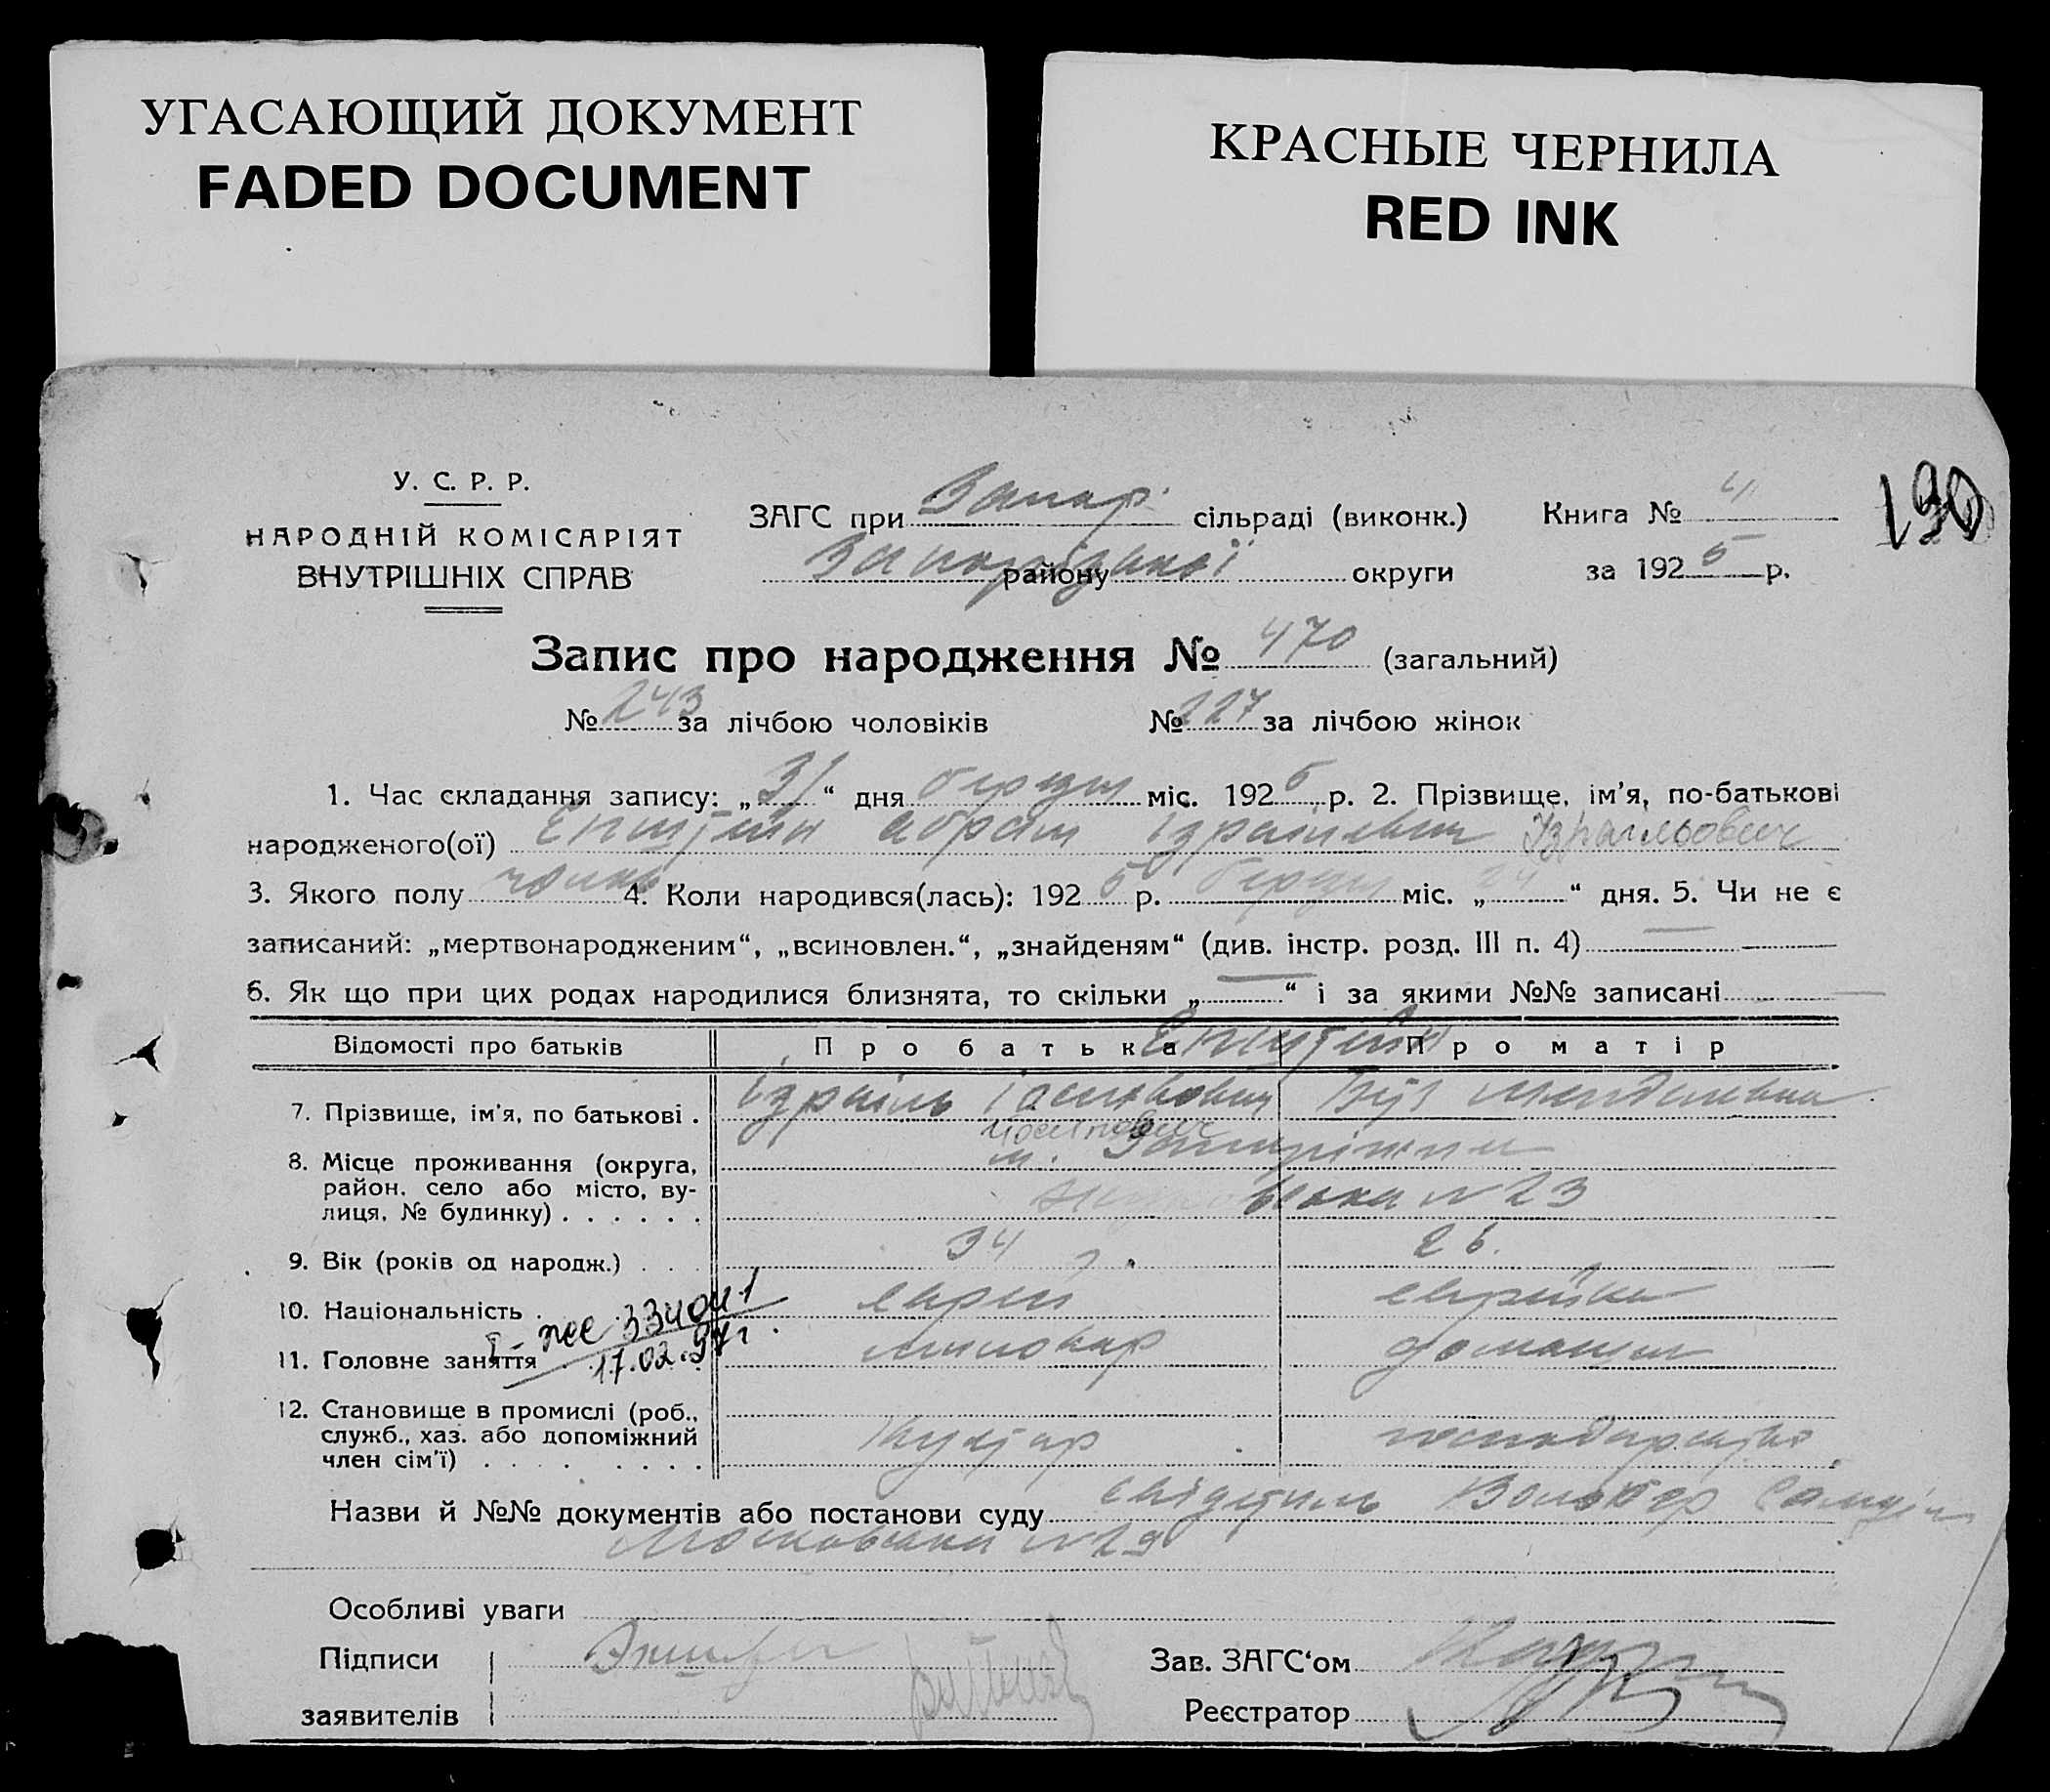 УГАСАЮЩИЙ ДОКУМЕНТ
FADED DOCUMENT
КРАСНЫЕ ЧЕРНИЛА
RED INK
190
У. С. Р. Р.
НАРОДНІЙ КОМІСАРІЯТ
ВНУТРІШНІХ СПРАВ
ЗАГС при Запор. сільраді (виконк.) Книга № 4
району Запорізької округи за 1925 р.
Запис про народження № 470 (загальний)
№ 243 за лічбою чоловіків № 227 за лічбою жінок
1. Час складання запису: „31“ дня березня міс. 1925 р. 2. Прізвище, ім'я, по-батькові
народженого(ої) Епштейн Абрам Ізраілевич Ізраильович
3. Якого полу чолов 4. Коли народився(лась): 1925 р. березня міс. „24“ дня. 5. Чи не є
записаний: „мертвонародженим“, „всиновлен.“, „знайденям“ (див. інстр. розд. III п. 4)
6. Як що при цих родах народилися близнята, то скільки „ “ і за якими №№ записані
Відомості про батьків Про батька Про матір
Епштейн
7. Прізвище, ім'я, по батькові . Ізраіль Іосипович Менделевна
Йосипович
8. Місце проживання (округа, район, село або місто, вулиця, № будинку) . . . . . . м. Запоріжжя
№ 23
9. Вік (років од народж.) . . . 34 26.
10. Національність . еврей еврейка
I - ЖС 334041
17.02.97г.
11. Головне заняття миловар домашнє
12. Становище в промислі (роб., служб., хаз. або допоміжний член сім'ї) . . . . . . . . кустар господарство
Назви й №№ документів або постанови суду свідетель Самуїл
Московська № 29
Особливі уваги
Підписи Зав. ЗАГС'ом
заявителів Реєстратор